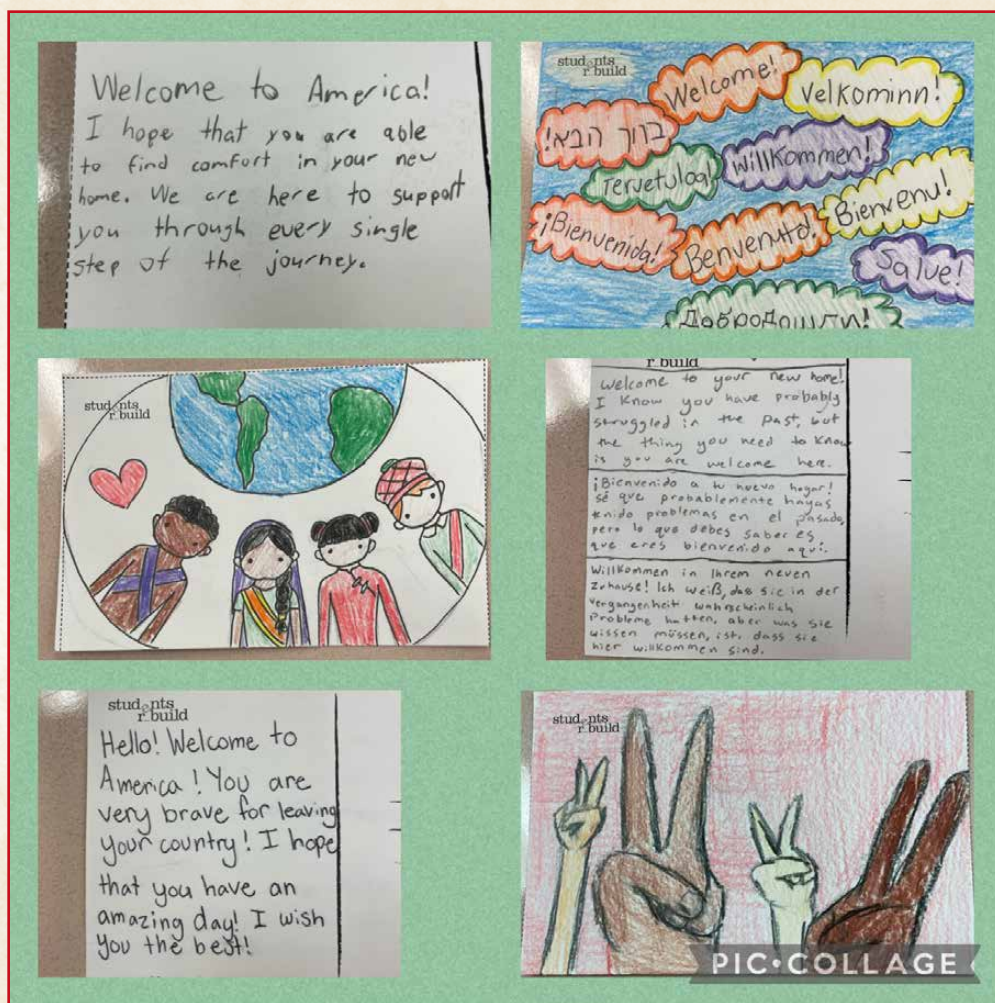 Welcome to America!
I hope that you are able
to find comfort in your new
home. We are here to support
you through every single
step of the journey.
students
rebuild
Welcome!
Velkominn!
ברוך הבא!
Willkommen!
Tervetuloa!
Bienvenu!
¡Bienvenida!
Benvenuto!
Salve!
Добродошли!
students
rebuild
rebuild
Welcome to your new home!
I know you have probably
struggled in the past, but
the thing you need to know
is you are welcome here.
¡Bienvenido a tu nuevo hogar!
sé que probablemente hayas
tenido problemas en el pasado,
pero lo que debes saber es
que eres bienvenido aquí.
Willkommen in Ihrem neuen
Zuhause! Ich weiß, das sie in der
vergangenheit wahrscheinlich
Probleme hatten, aber was sie
wissen müssen, ist, dass sie
hier willkommen sind.
students
rebuild
Hello! Welcome to
America! You are
very brave for leaving
your country! I hope
that you have an
amazing day! I wish
you the best!
students
rebuild
PIC•COLLAGE